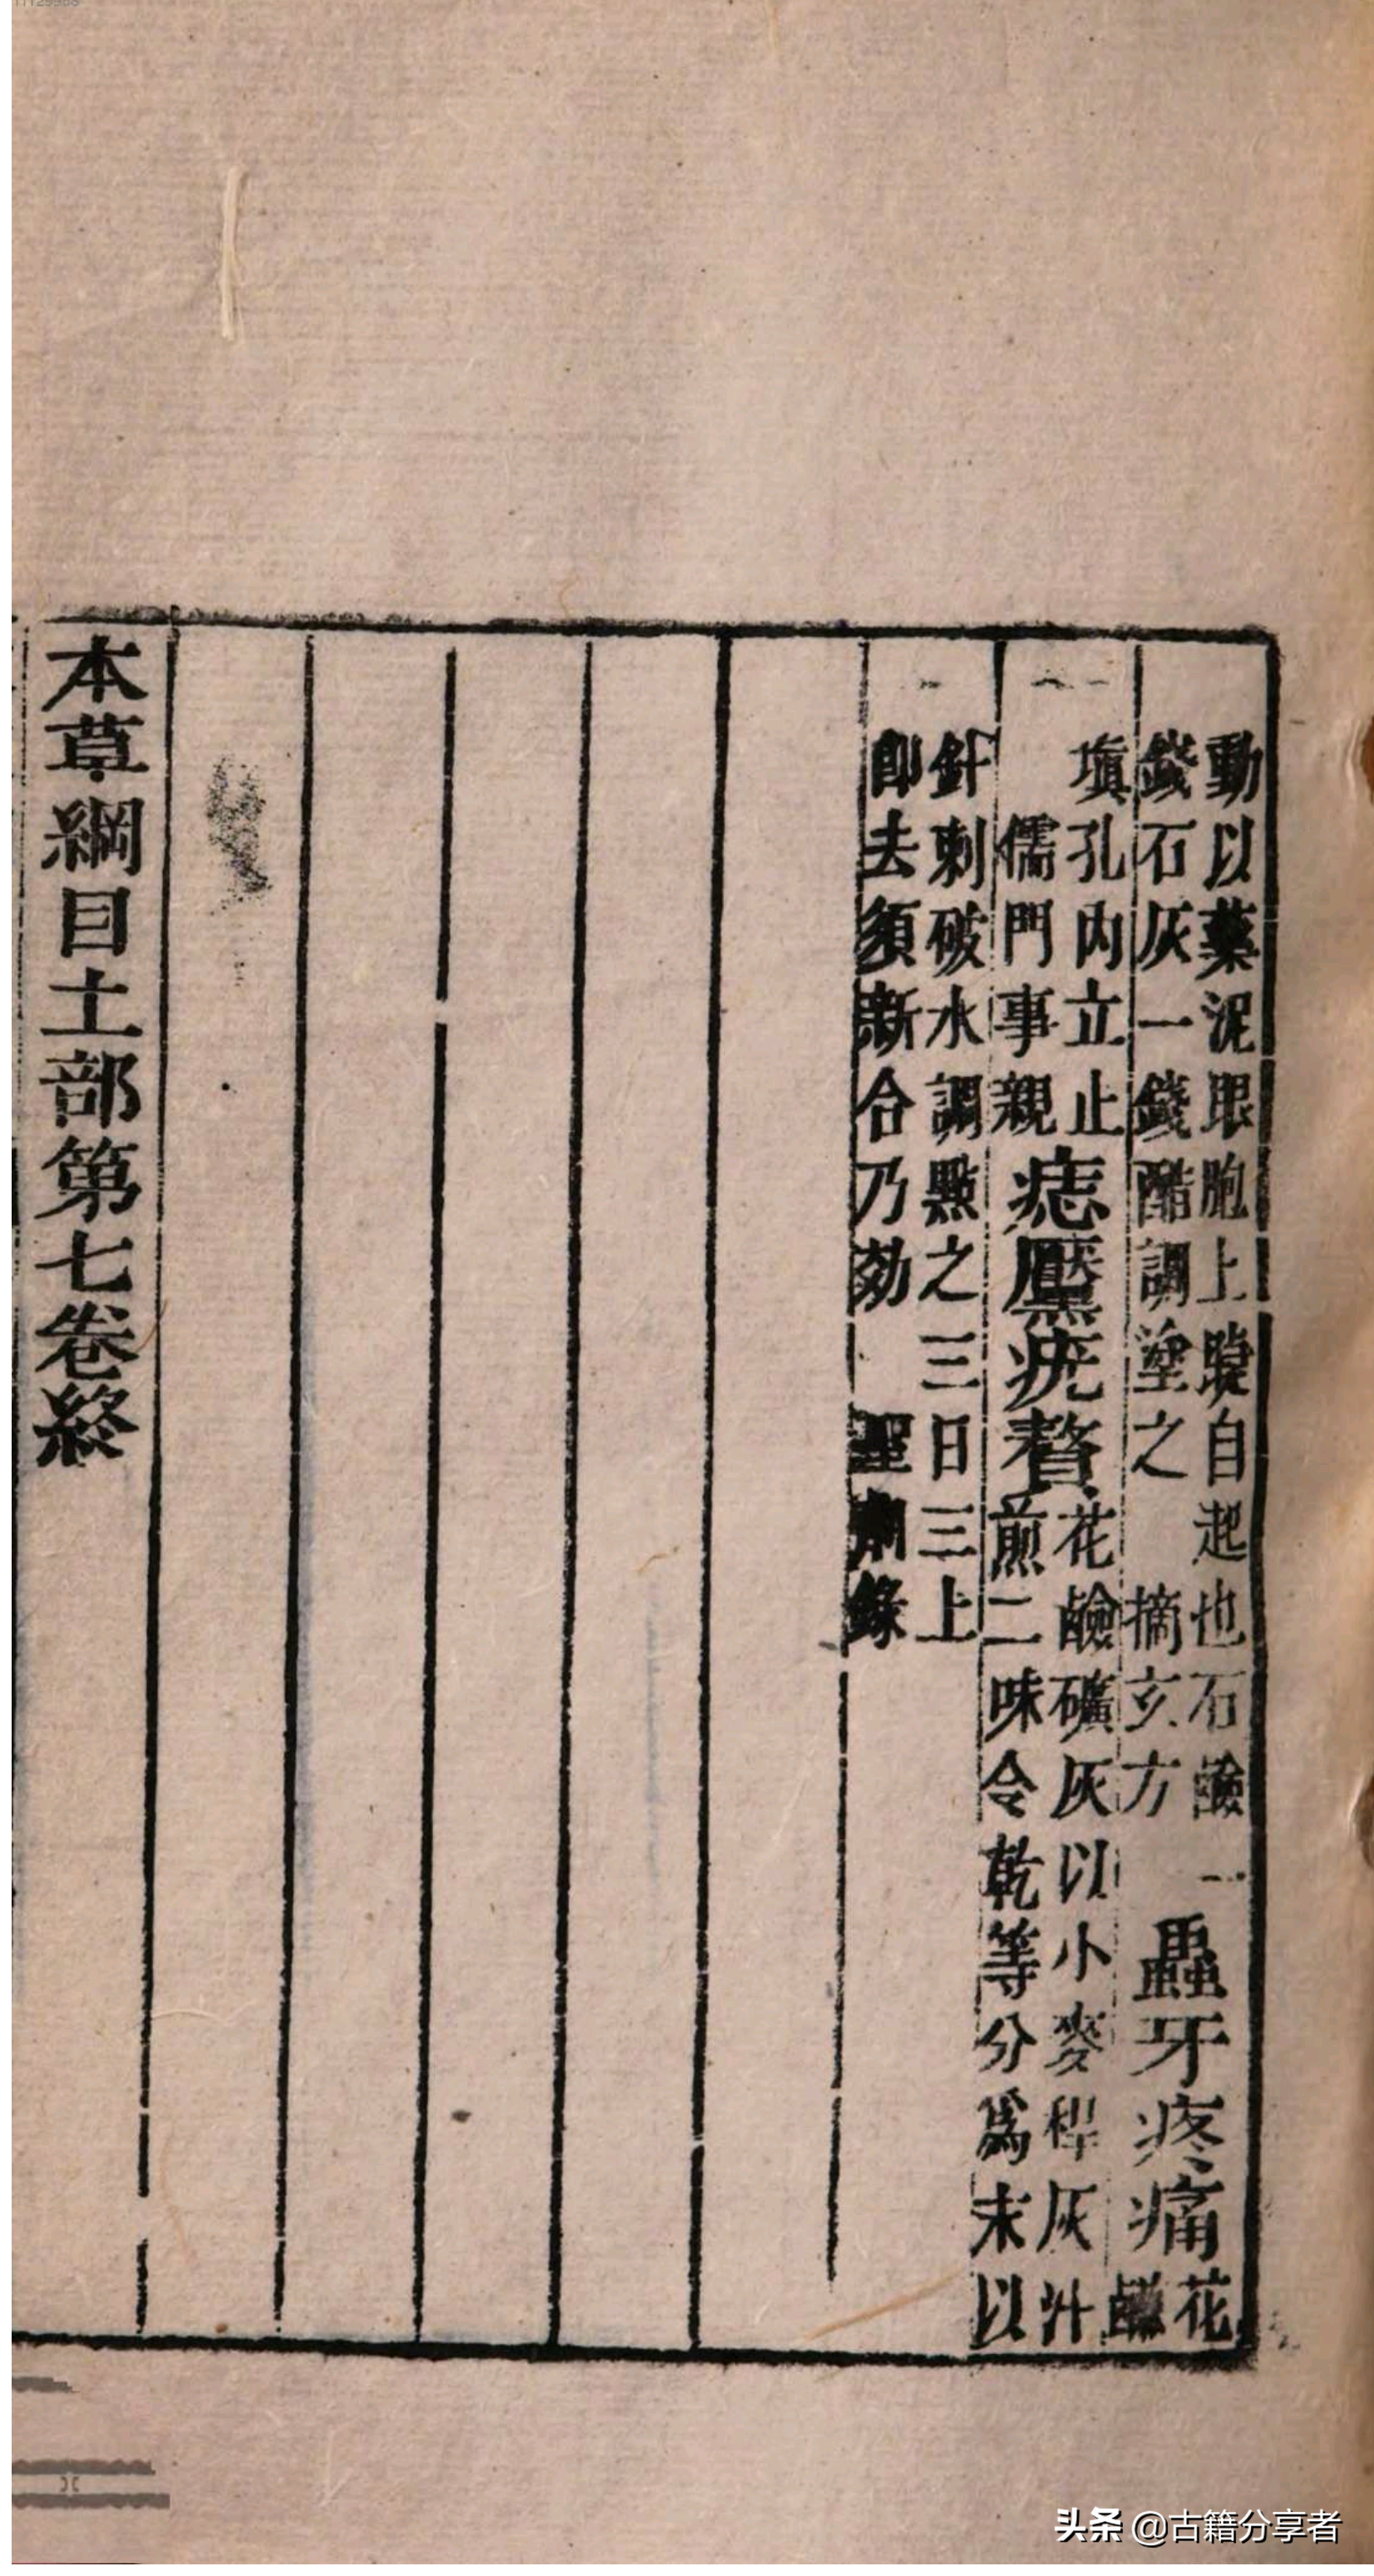 動以藥泥眼胞上睫自起也石鹼一
錢石灰一錢醋調塗之　摘玄方
蟲牙疼痛花
鹼
塡孔內立止
儒門事親
痣黶疣贅
花鹼礦灰以小麥稈灰汁
煎二味令乾等分爲末以
針刺破水調點之三日三上
卽去須新合乃効　聖濟錄
本草綱目土部第七卷終
头条 @古籍分享者